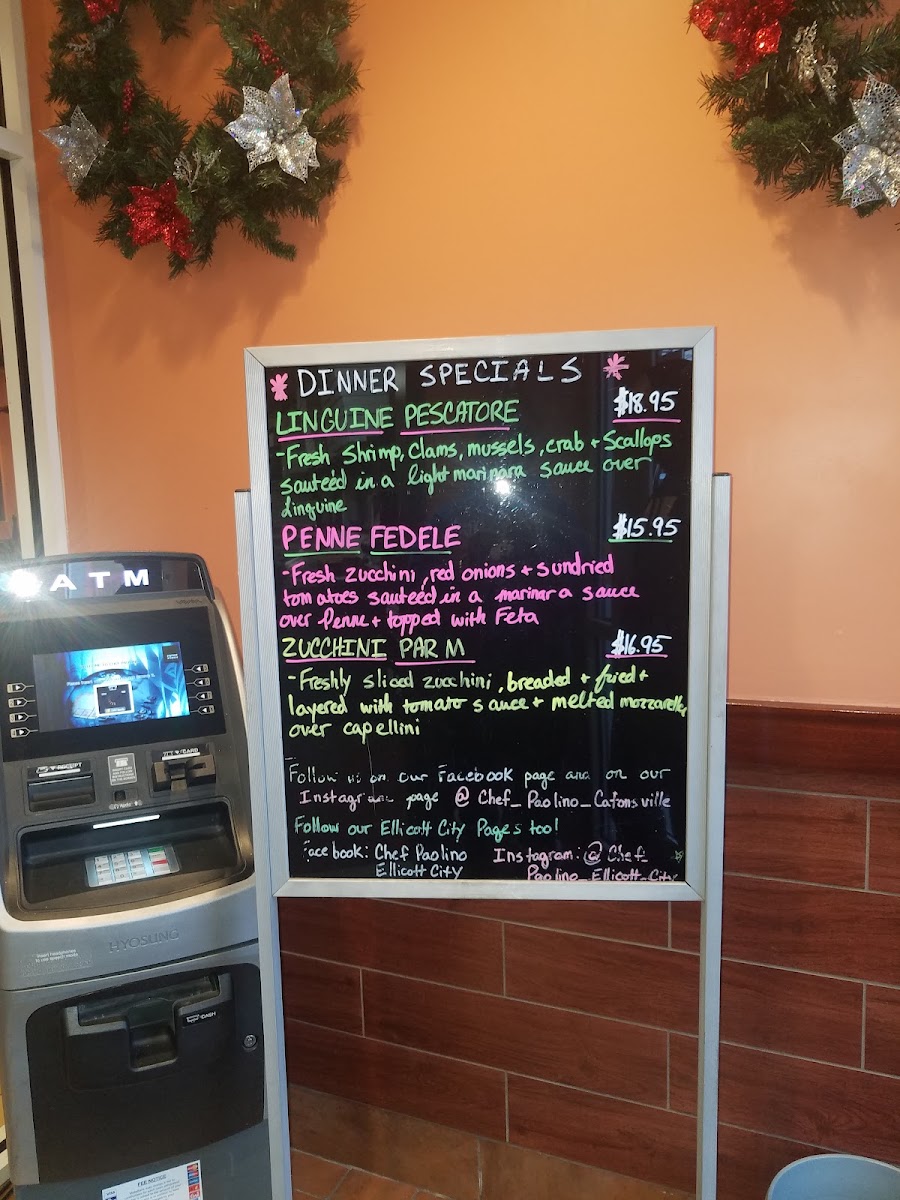 * DINNER SPECIALS *
LINGUINE PESCATORE $18.95
-Fresh Shrimp, Clams, mussels, crab + Scallops
sauteéd in a light marinara sauce over
Linguine
PENNE FEDELE $15.95
-Fresh zucchini, red onions + sundried
tomatoes sauteéd in a marinara sauce
over Penne + topped with Feta
ZUCCHINI PARM $16.95
-Freshly sliced zucchini, breaded + fried +
layered with tomato sauce + melted mozzarella
over capellini
Follow us on our Facebook page and on our
Instagram page @ Chef_Paolino_Catonsville
Follow our Ellicott City Pages too!
Facebook: Chef Paolino Instagram: @ Chef_
Ellicott City Paolino_Ellicott_City
ATM
RECEIPT
CARD
HYOSUNG
CASH
FEE NOTICE